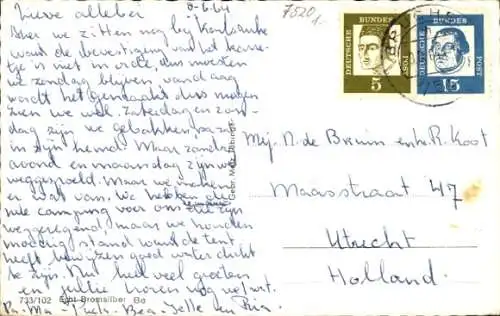 Lieve allebei 8-6-64
Maar we zitten nog bij Karlsruhe
want de bevestiging van het
is niet in orde dus moesten
we zondag blijven vandaag
wordt het gemaakt dus morgen
zien we wel. Zaterdag en zon-
dag zijn we gebakken, zo
in zijn hemd. Maar zondag
avond en maandag zijn we
weggespoeld. Maar we maken
er wat van. We hebben de
hele camping voor ons
weggeregend, maar we houden
moedig stand want de tent
heeft bewezen goed waterdicht
te zijn. Nu heel veel groeten
en jullie horen nog wel wat.
Pa. Ma - - Bea - Jelle en Ria.
7520
1.-
DEUTSCHE BUNDESPOST
5
DEUTSCHE BUNDESPOST
15
Mij. N. de Bruin en hr. R. Koot
Maasstraat 47
Utrecht
Holland.
Gebr. Metz, Tübingen
733/102 Echt Bromsilber